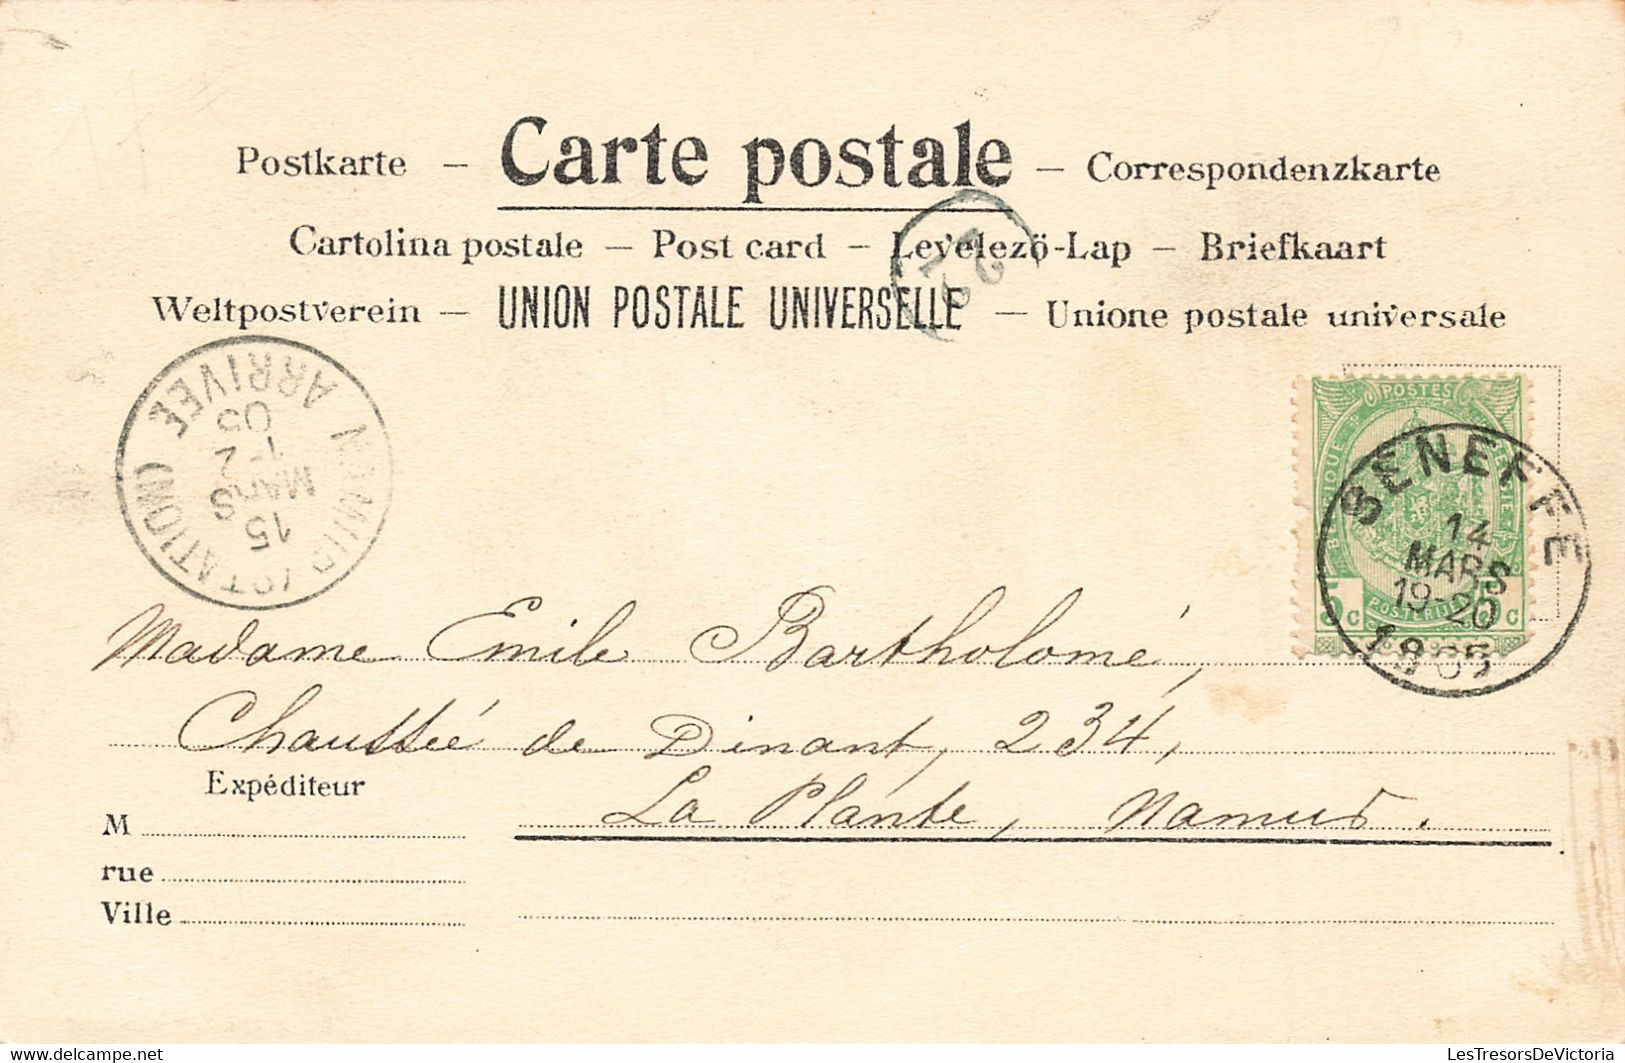 Postkarte – Carte postale – Correspondenzkarte
Cartolina postale – Post card – Levelezö-Lap – Briefkaart
Weltpostverein – UNION POSTALE UNIVERSELLE – Unione postale universale
NAMUR (STATION)
ARRIVÉE
15
MARS
1-2
05
POSTES
BELGIQUE
BELGIE
POSTERIJEN
5 c
5 c
SENEFFE
14
MARS
19-20
1905
Madame Emile Bartholomé,
Chaussée de Dinant, 234,
La Plante, Namur.
Expéditeur
M
rue
Ville
LesTresorsDeVictoria
delcampe.net
LesTresorsDeVictoria